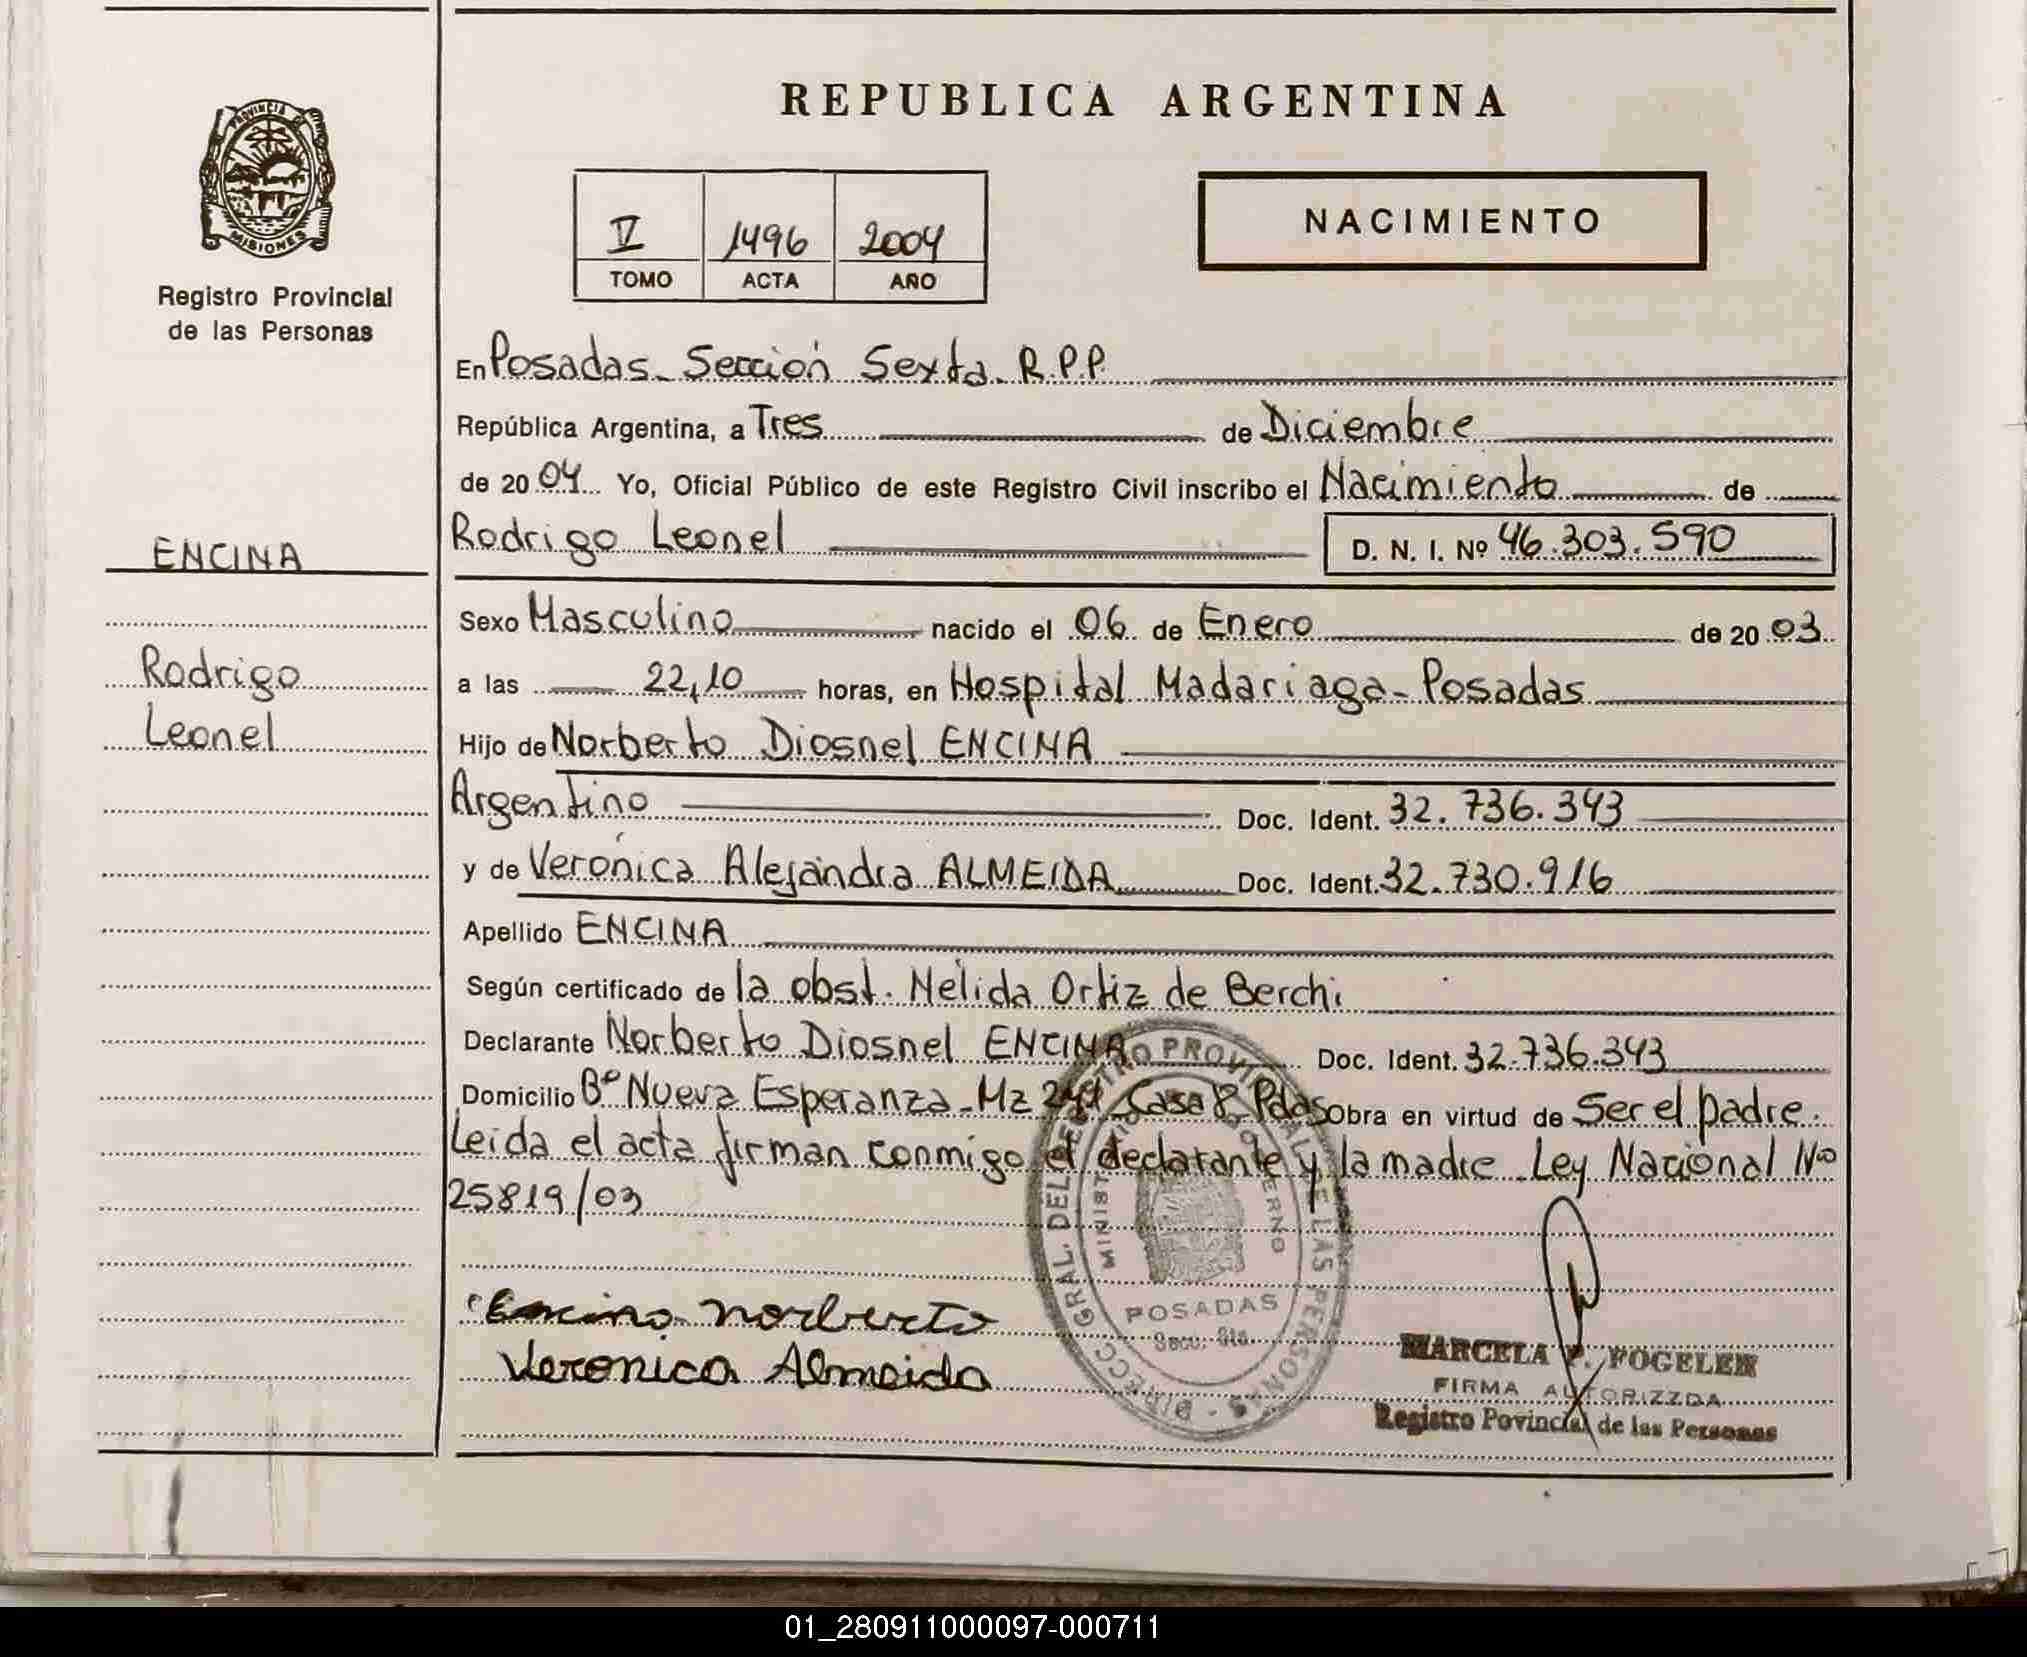 REPUBLICA ARGENTINA
PROVINCIA DE
MISIONES
Registro Provincial
de las Personas
V 1496 2004
TOMO ACTA AÑO
NACIMIENTO
En Posadas - Sección Sexta - R.P.P.
República Argentina, a Tres de Diciembre
de 20 04 Yo, Oficial Público de este Registro Civil inscribo el Nacimiento de
Rodrigo Leonel D. N. I. Nº 46.303.590
ENCINA
Rodrigo
Leonel
Sexo Masculino nacido el 06 de Enero de 20 03
a las 22,10 horas, en Hospital Madariaga - Posadas
Hijo de Norberto Diosnel ENCINA
Argentino Doc. Ident. 32.736.343
y de Verónica Alejandra ALMEIDA Doc. Ident. 32.730.916
Apellido ENCINA
Según certificado de la obst. Nélida Ortiz de Berchi
Declarante Norberto Diosnel ENCINA Doc. Ident. 32.736.343
Domicilio Bº Nueva Esperanza - Mz Casa 8 Pdas obra en virtud de Ser el padre.
Leida el acta firman conmigo el declarante y la madre Ley Nacional Nº
25819/03
Encina Norberto
Veronica Almeida
DIRECC. GRAL. DEL REGISTRO PROVINCIAL DE LAS PERSONAS
MINISTERIO DE GOBIERNO
POSADAS
Secc. 6ta.
MARCELA FOGELER
FIRMA AUTORIZZDA
Registro Povincial de las Personas
01_280911000097-000711